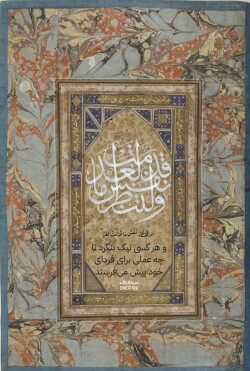 ولتنظر نفس ما
قدمت لغد
و هر کسی نیک بنگرد تا
چه عملی برای فردای
خود پیش می‌فرستد